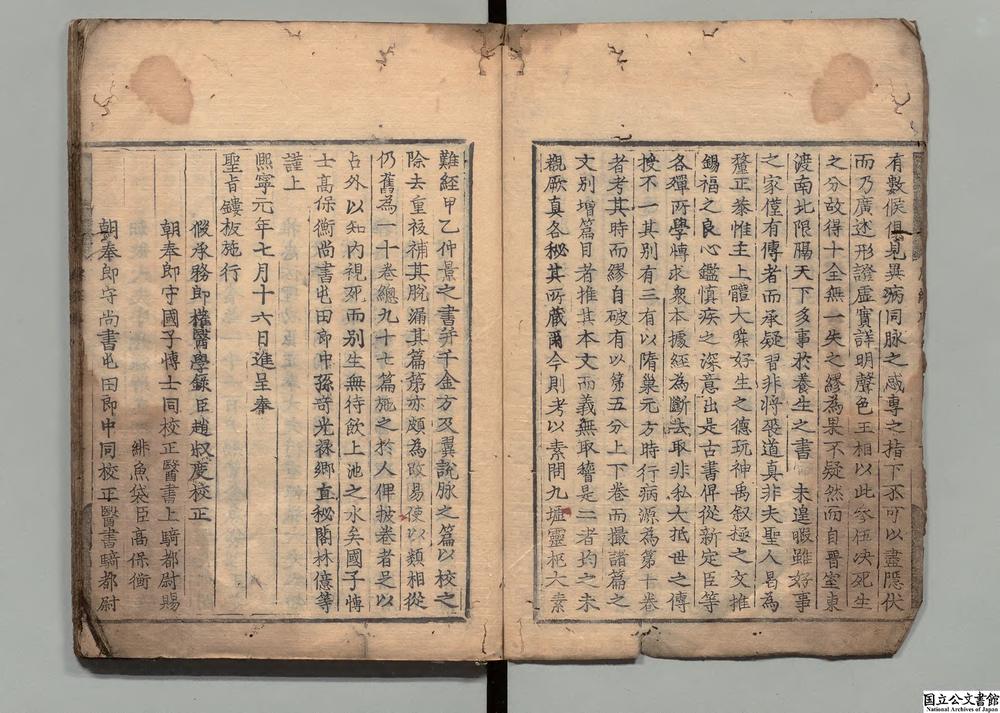 有數候俱見異病同脉之惑專之指下不可以盡隱伏
而乃廣述形證虛實詳明聲色王相以此參伍決死生
之分故得十全無一失之繆爲果不疑然而自晉室東
渡南北限隔天下多事於養生之書 未遑暇雖好事
之家僅有傳者而承疑習非將喪道真非夫聖人曷爲
釐正恭惟主上體大舜好生之德玩神禹叙極之文推
錫福之良心鑑慎疾之深意出是古書俾從新定臣等
各殫所學博求衆本據經爲斷去取非私大抵世之傳
授不一其別有三有以隋巢元方時行病源爲第十卷
者考其時而繆自破有以第五分上下卷而撮諸篇之
文別增篇目者推其本文而義無取𥡴是二者均之未
覩厥真各秘其所藏爾今則考以素問九墟靈樞太素
難經甲乙仲景之書并千金方及翼說脉之篇以校之
除去重複補其脫漏其篇第亦頗爲改易使以類相從
仍舊爲一十卷總九十七篇施之於人俾披卷者足以
占外以知內視死而別生無待飲上池之水矣國子博
士高保衡尚書屯田郎中孫奇光祿卿直秘閣林億等
謹上
熙寧元年七月十六日進呈奉
聖旨鏤板施行
假承務郎權醫學錄臣趙叔度校正
朝奉郎守國子博士同校正醫書上騎都尉賜
緋魚袋臣高保衡
朝奉郎守尚書屯田郎中同校正醫書騎都尉
国立公文書館
National Archives of Japan